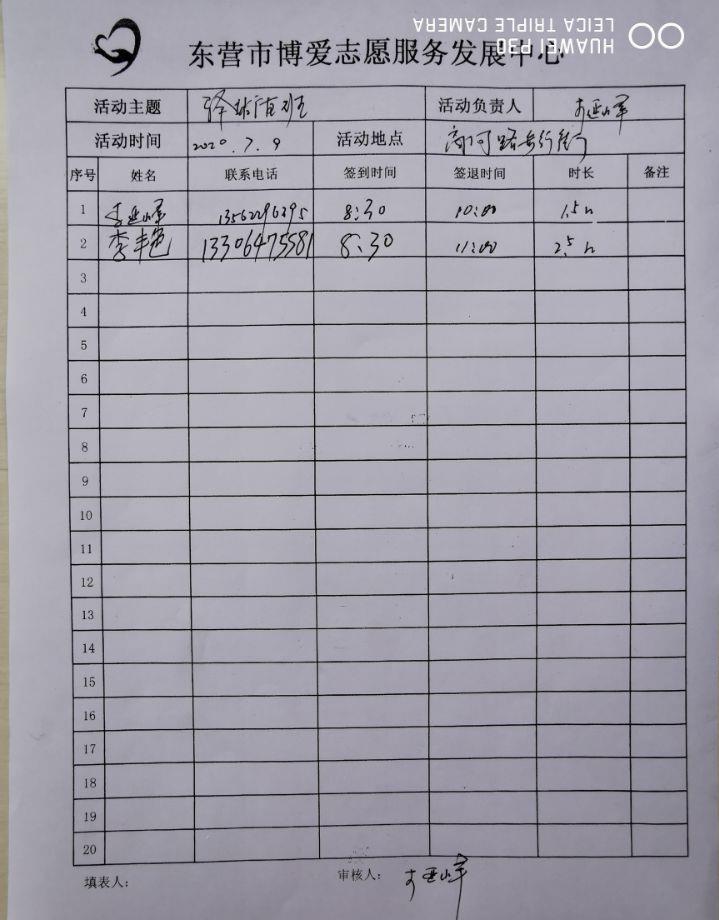 HUAWEI P30
LEICA TRIPLE CAMERA
东营市博爱志愿服务发展中心
活动主题 活动负责人
活动时间 2020.7.9 活动地点 商河路步行街
序号 姓名 联系电话 签到时间 签退时间 时长 备注
1 8:30 10:00 1.5h
2 李丰艳 13306475581 8:30 11:00 2.5h
3
4
5
6
7
8
9
10
11
12
13
14
15
16
17
18
19
20
填表人： 审核人：